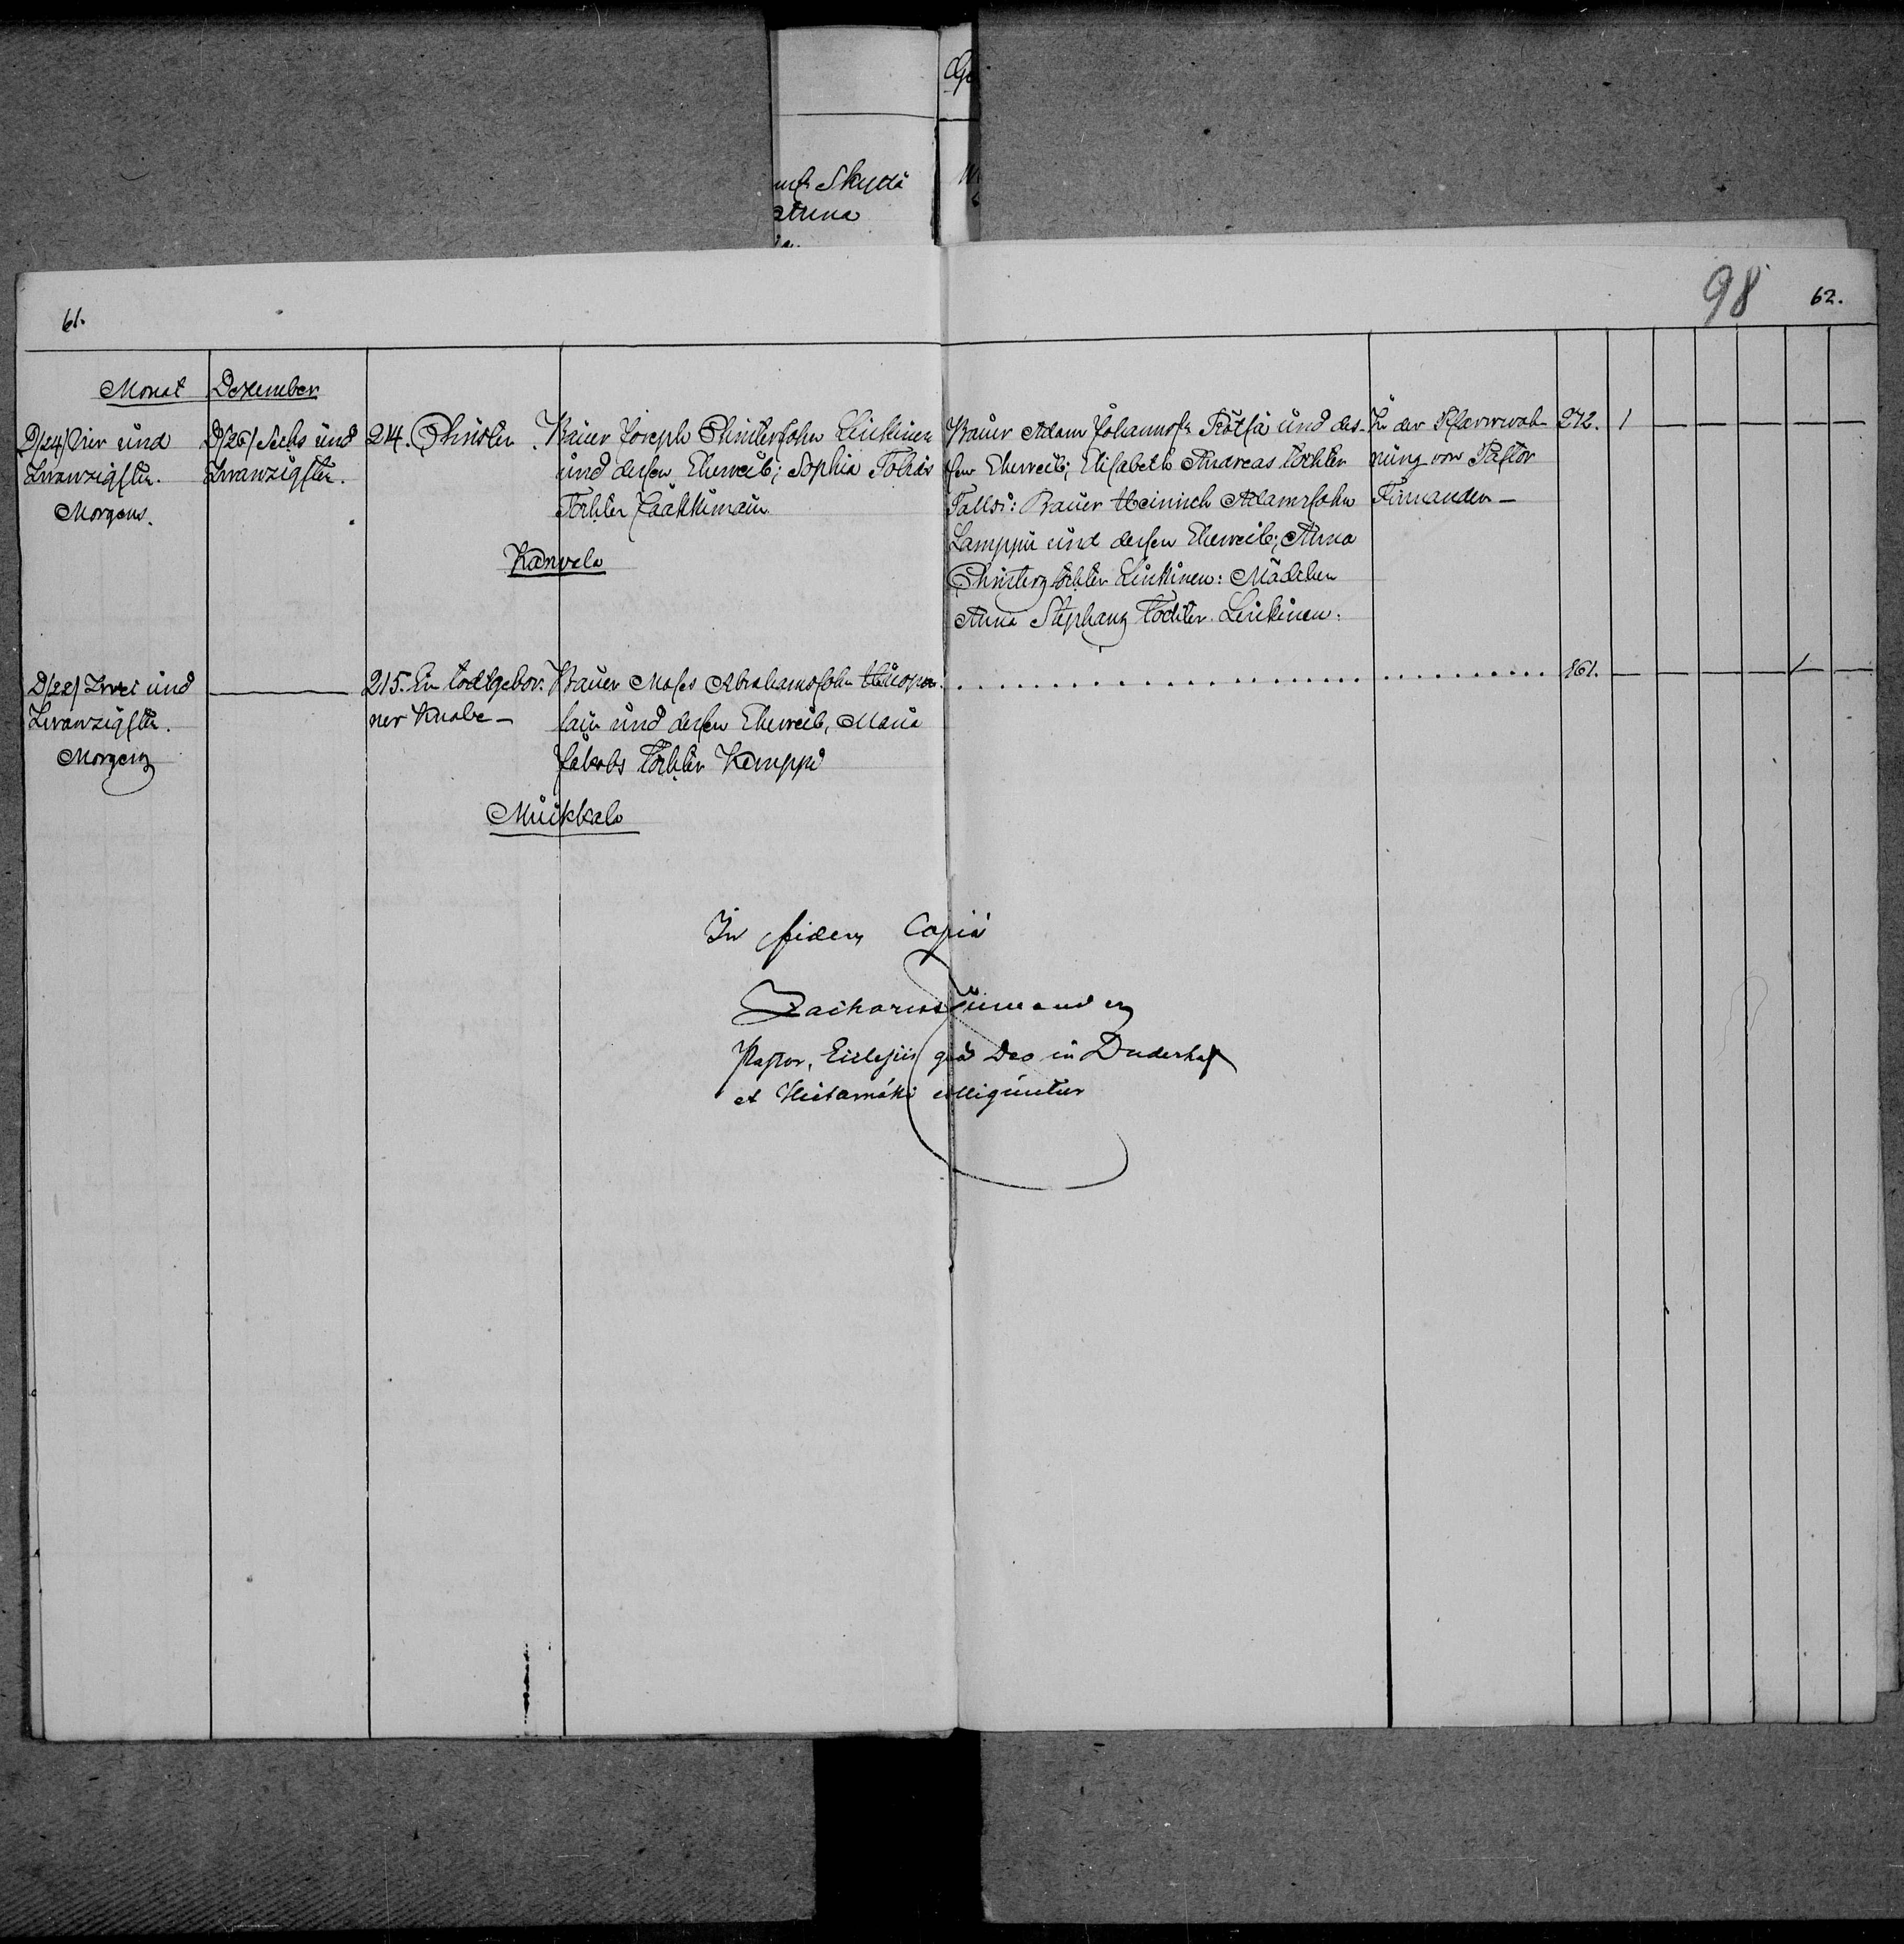 61.
98
62.
Monat Dezember
D/24/ Vier und
Zwanzigsten.
Morgens.
D/26/ Sechs und
Zwanzigsten.
214. Christer.
Bauer Joseph Christersohn Liukinen
und dessen Eheweib; Sophia Tobias
Tochter Jääskimäin
Karvela
Bauer Adam Johannofs Rötsä und des-
sen Eheweib; Elisabeth Andreas tochter
Talls: Bauer Heinrich Adamssohn
Lamppu und dessen Eheweib; Anna
Christers tochter Liukinen: Mädchen
Anna Stephans Tochter Liukinen:
In der Pfarrwoh-
nung von Pastor
272. 1 — — — — —
D/22/ Zwei und
Zwanzigsten.
Morgens
215. Ein todtgebor-
ner Knabe —
Bauer Moses Abrahamssohn
und dessen Eheweib, Maria
Jakobs Tochter Kamppi
Muikkala
161. — — — — 1 —
In fidem Copiä
Zacharias
Pastor, Ecclesiis quä Deo in Duderhof
et Hietamäki colliguntur